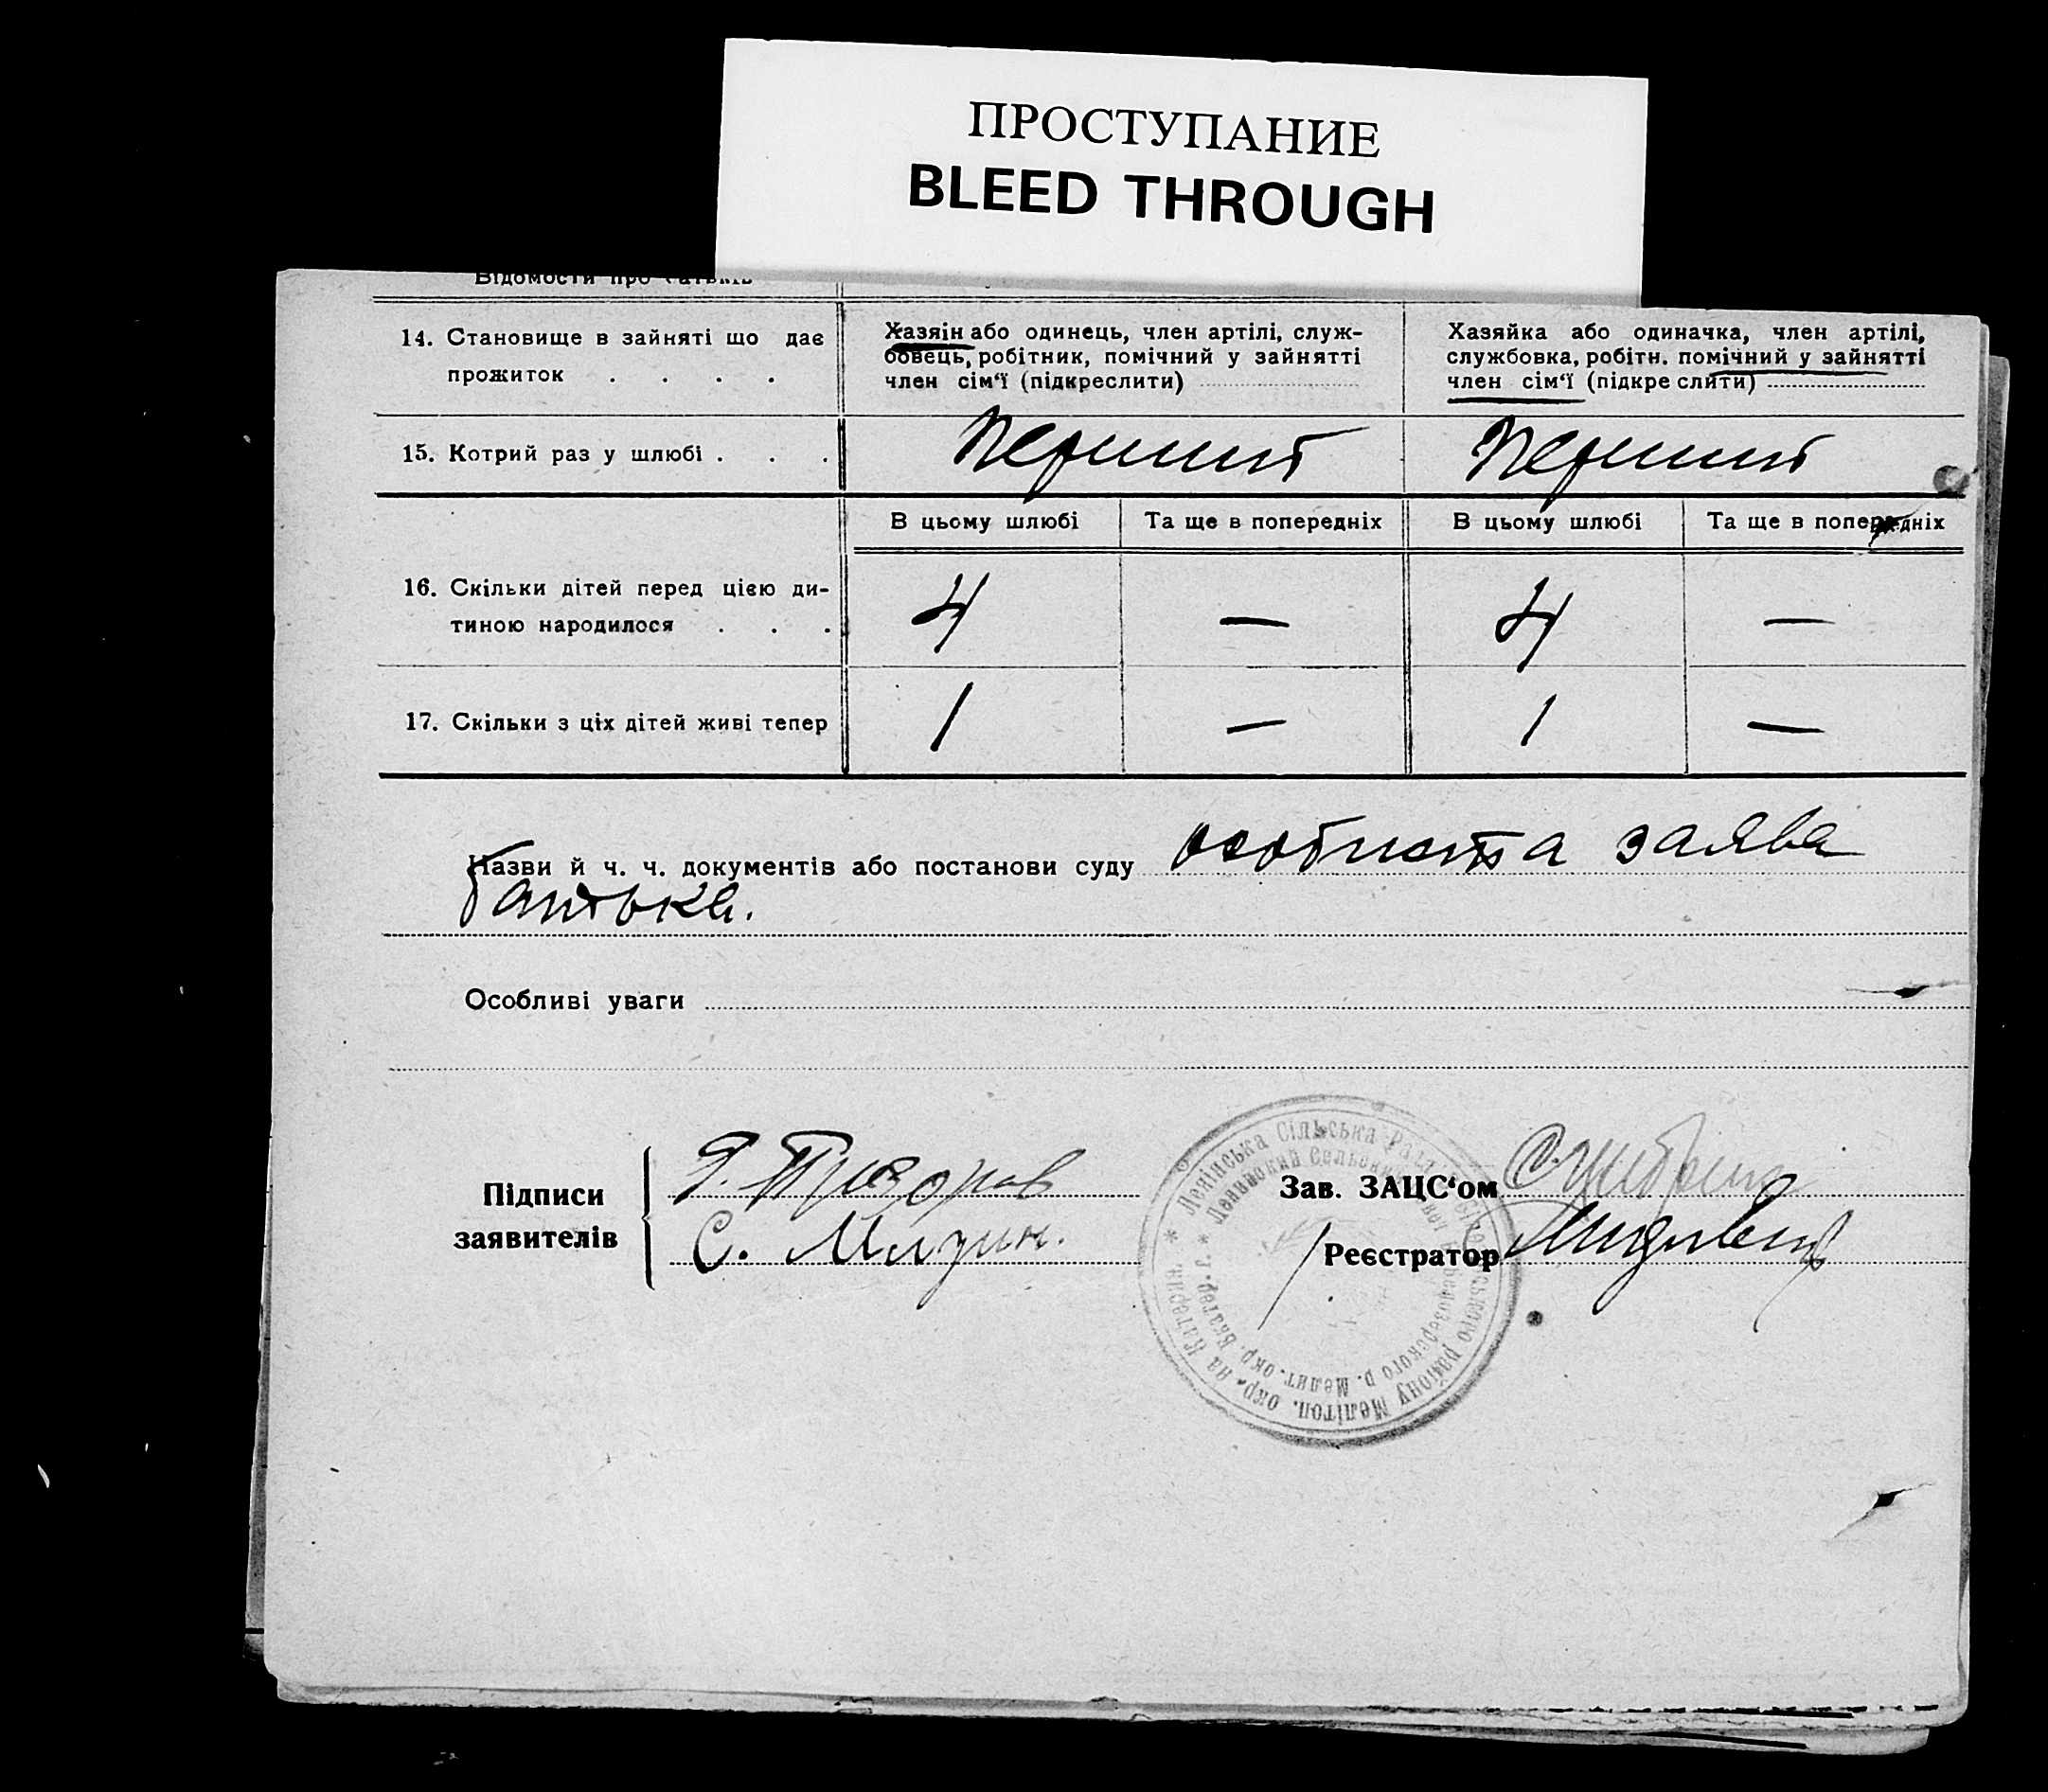 ПРОСТУПАНИЕ
BLEED THROUGH
Відомости про батьків
14. Становище в зайняті що дає
прожиток . . . .
Хазяін або одинець, член артілі, служ-
бовець, робітник, помічний у зайнятті
член сім‘ї (підкреслити)
Хазяйка або одиначка, член артілі,
службовка, робітн. помічний у зайнятті
член сім‘ї (підкреслити)
15. Котрий раз у шлюбі . . .
Перший
Перший
В цьому шлюбі
Та ще в попередніх
В цьому шлюбі
Та ще в попередніх
16. Скільки дітей перед цією ди-
тиною народилося . . .
4
—
4
—
17. Скільки з ціх дітей живі тепер
1
—
1
—
Назви й ч. ч. документів або постанови суду особиста заява
батька.
Особливі уваги
Підписи
заявителів
Я.
С.
Ленінська Сільська Рада
району Мелітоп. окр. на Катерин.
Мелит. окр. Екатер. г.
Зав. ЗАЦС‘ом
Реєстратор